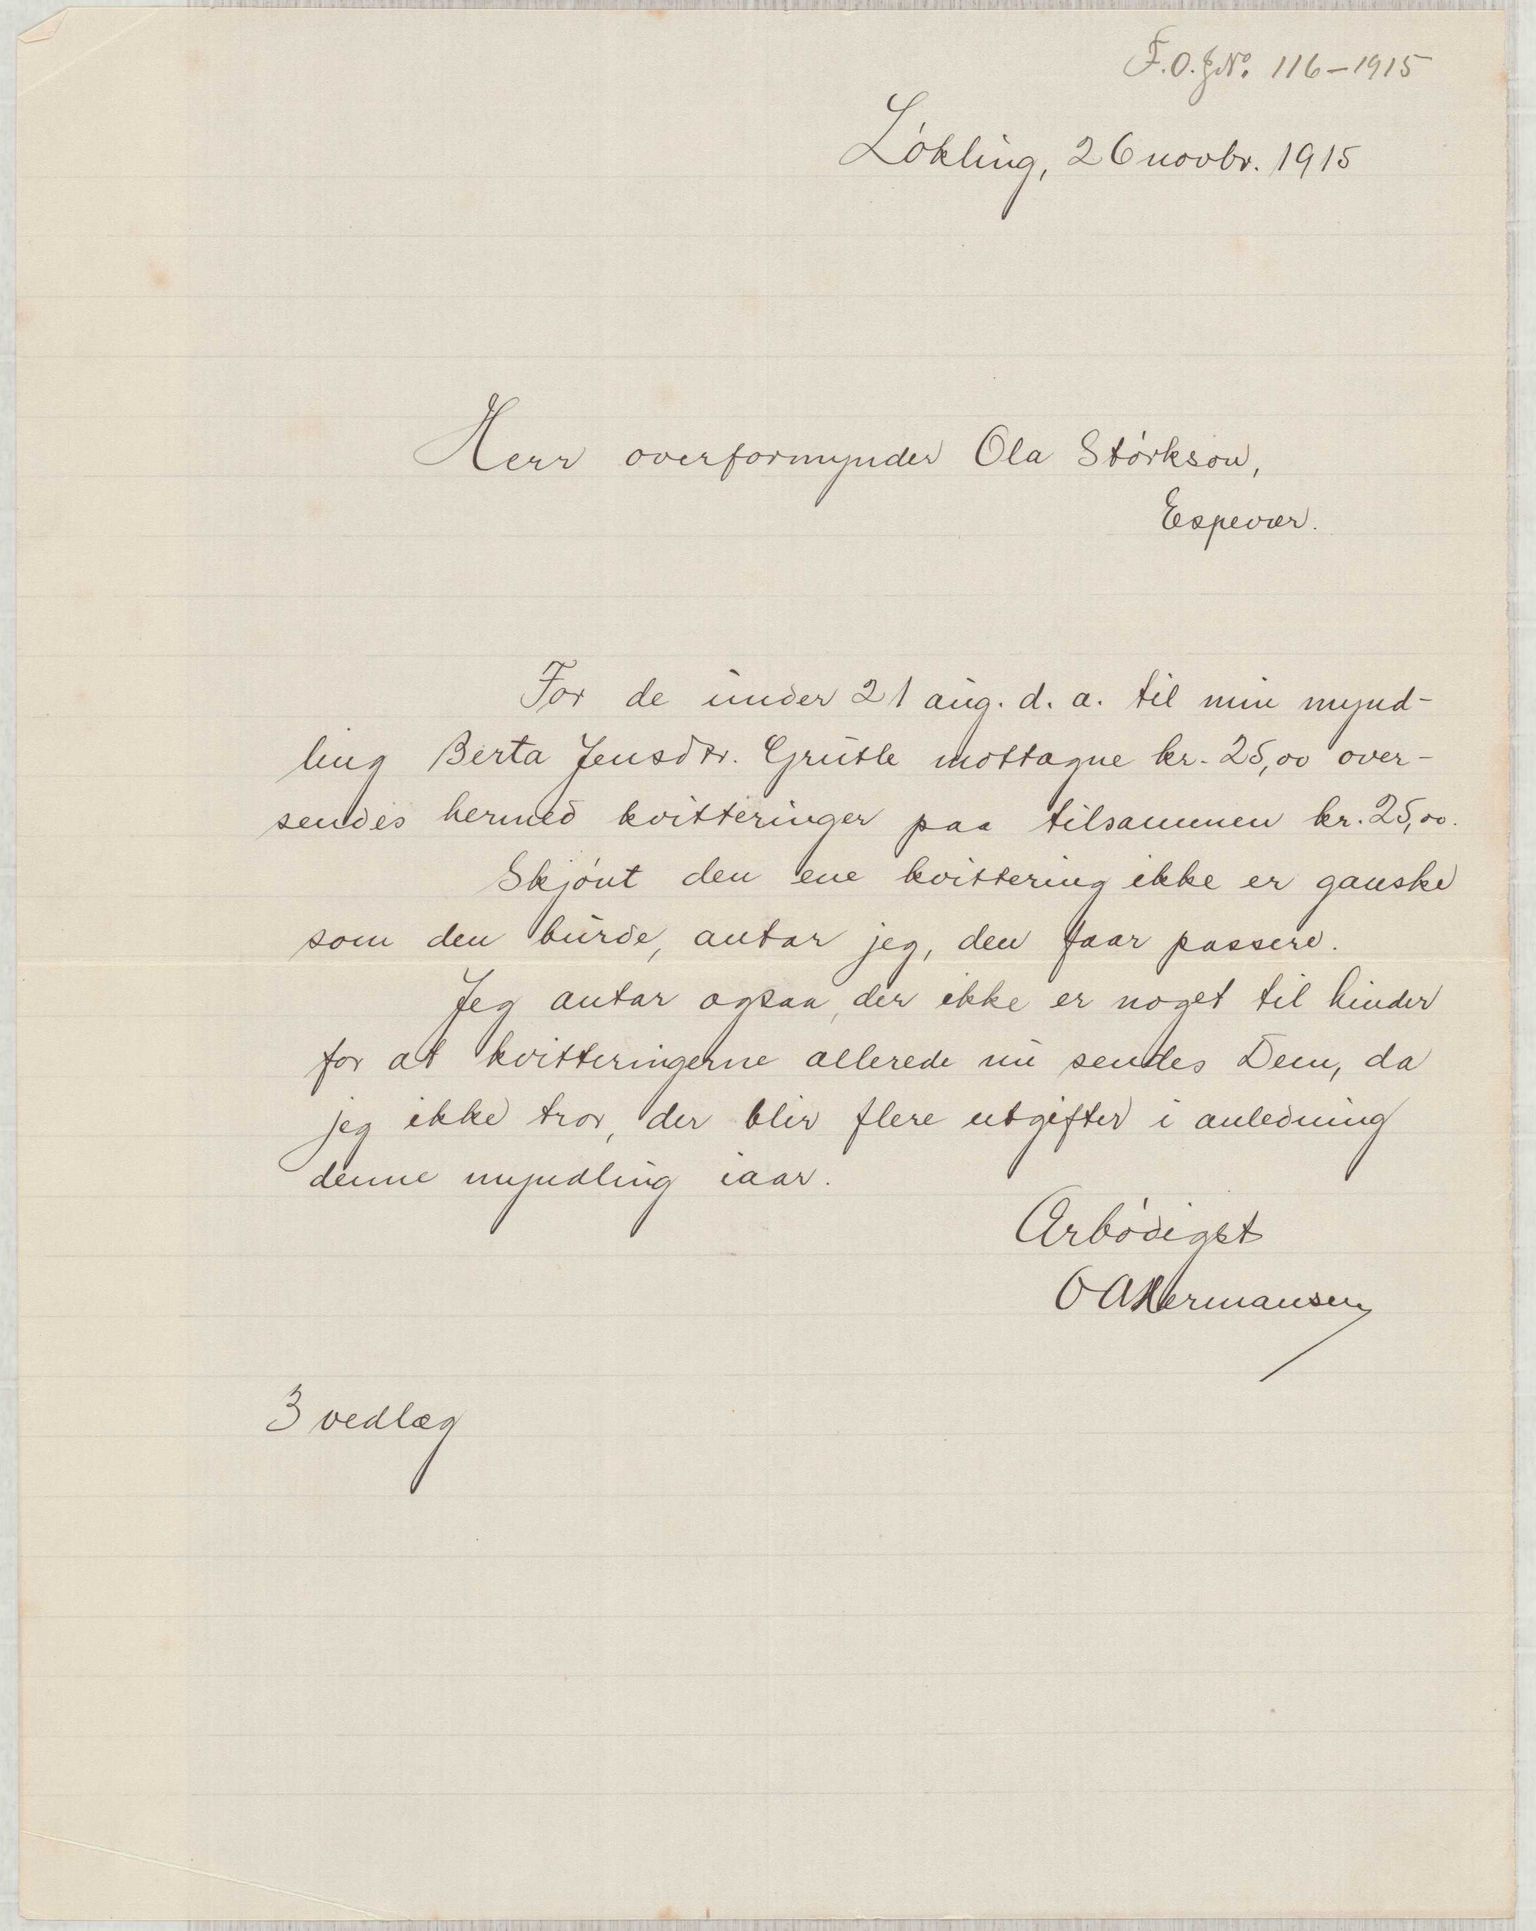 F.O.J.No. 116-1915
Lókling, 26 novbr. 1915
Herr overformynder Ola Stórkson,
Espevær.
For de under 21 aug. d. a. til min mynd-
ling Berta Jensdtr. Grutle mottagne kr. 25,00 over-
sendes hermed kvitteringer paa tilsammen kr. 25,00.
Skjónt den ene kvittering ikke er ganske
som den burde, antar jeg, den faar passere.
Jeg antar ogsaa, der ikke er noget til hinder
for at kvitteringerne allerede nu sendes Dem, da
jeg ikke tror, der blir flere utgifter i anledning
denne myndling iaar.
Ærbódigst
O A Hermansen
3 vedlæg